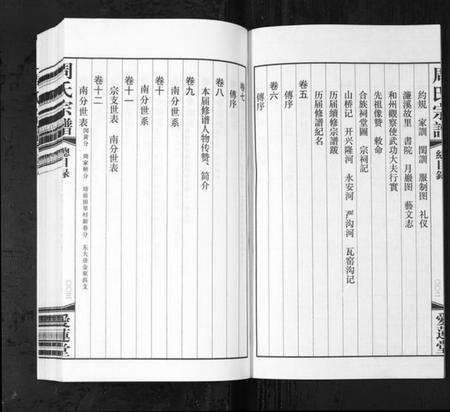 周氏宗谱 总目录
约规 家训 闺训 服制图 礼仪
濂溪故里 书院 月岩图 艺文志
和州观察使武功大夫行实
先祖像赞 敕命
合族祠堂图 宗祠记
山桥记 开兴隆河 永安河 严沟河 瓦窑沟记
历届续修宗谱跋
历届修谱纪名
卷五
傳序
卷六
傳序
爱莲堂
卷七
傳序
卷八
本届修谱人物传赞、简介
卷九
南分世系
卷十
南分世系
卷十一
宗支世表 南分世表
卷十二
南分世表
周氏宗谱 总目录
爱莲堂